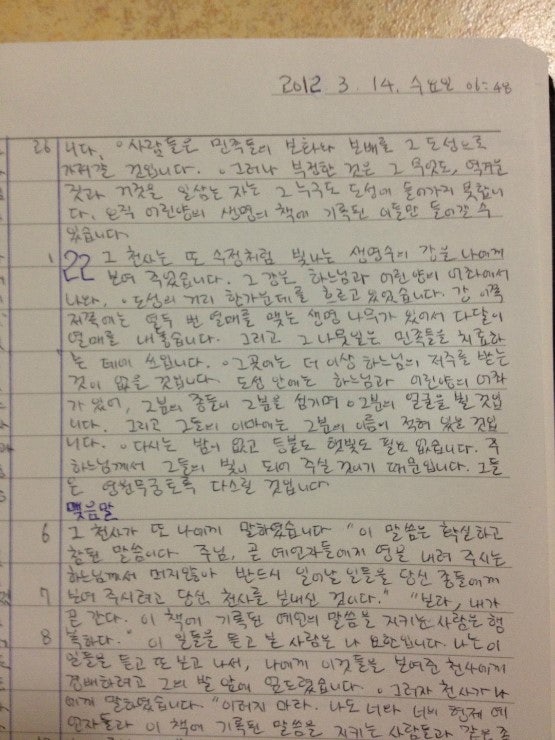 2012. 3. 14. 수요일 06:48
26 니다. ㅇ사람들은 민족들의 보화와 보배를 그 도성으로
가져갈 것입니다. ㅇ그러나 부정한 것은 그 무엇도, 역겨운
짓과 거짓을 일삼는 자는 그 누구도 도성에 들어가지 못합니
다. 오직 어린양의 생명의 책에 기록된 이들만 들어갈 수
있습니다.
1 22 그 천사는 또 수정처럼 빛나는 생명수의 강을 나에게
보여 주었습니다. 그 강은 하느님과 어린양의 어좌에서
나와, ㅇ도성의 거리 한가운데를 흐르고 있었습니다. 강 이쪽
저쪽에는 열두 번 열매를 맺는 생명 나무가 있어서 다달이
열매를 내놓습니다. 그리고 그 나뭇잎은 민족들을 치료하
는 데에 쓰입니다. ㅇ그곳에는 더 이상 하느님의 저주를 받는
것이 없을 것입니다. 도성 안에는 하느님과 어린양의 어좌
가 있어, 그분의 종들이 그분을 섬기며 ㅇ그분의 얼굴을 뵐 것입
니다. 그리고 그들의 이마에는 그분의 이름이 적혀 있을 것입
니다. ㅇ다시는 밤이 없고 등불도 햇빛도 필요 없습니다. 주
하느님께서 그들의 빛이 되어 주실 것이기 때문입니다. 그들
은 영원무궁토록 다스릴 것입니다.
맺음말
6 그 천사가 또 나에게 말하였습니다. "이 말씀은 확실하고
참된 말씀입니다. 주님, 곧 예언자들에게 영을 내려 주시는
하느님께서 머지않아 반드시 일어날 일들을 당신 종들에게
7 보여 주시려고 당신 천사를 보내신 것이다." "보라, 내가
곧 간다. 이 책에 기록된 예언의 말씀을 지키는 사람은 행
8 복하다." 이 일들을 듣고 본 사람은 나 요한입니다. 나는 이
일들을 듣고 또 보고 나서, 나에게 이것들을 보여준 천사에게
경배하려고 그의 발 앞에 엎드렸습니다. ㅇ그러자 천사가 나
에게 말하였습니다. "이러지 마라. 나도 너와 너의 형제 예
언자들과 이 책에 기록된 말씀을 지키는 사람들과 같은 종